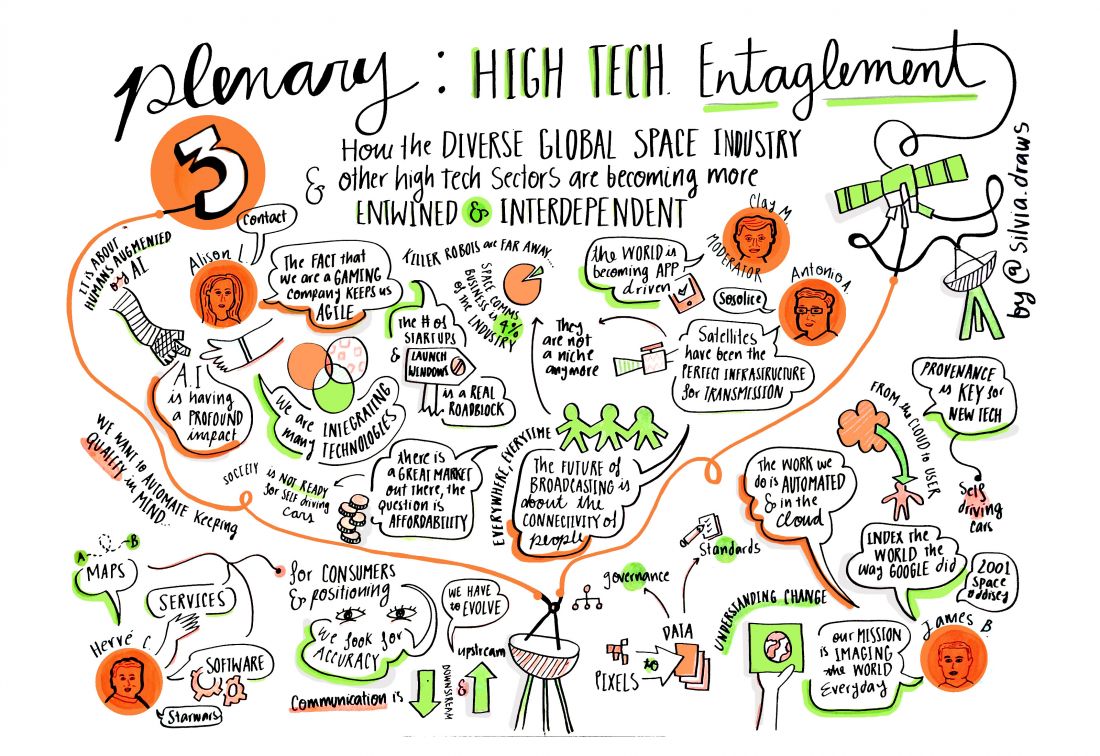 plenary : HIGH TECH. Entaglement
3
How the DIVERSE GLOBAL SPACE INDUSTRY
& other high tech sectors are becoming more
ENTWINED & INTERDEPENDENT
by @silvia.draws
IT IS ABOUT
HUMANS AUGMENTED
by AI
Contact
Alison L.
The FACT that
we are a GAMING
company KEEPS us
AGILE
KILLER ROBOTS are FAR AWAY...
SPACE COMMS
BUSINESS is 4%
OF the INDUSTRY
the # of
STARTUPS
&
LAUNCH
WINDOWS
is a REAL
ROADBLOCK
A.I
is having
a PROFOUND
impact
We are INTEGRATING
many TECHNOLOGIES
the WORLD is
becoming APP
driven
Clay M.
MODERATOR
Antonio A.
Sosolice
They
are not
a niche
anymore
Satellites
have been the
PERFECT INFRASRUCTURE
for TRANSMISSION
PROVENANCE
is KEY for
NEW TECH
Self
driving
cars
FROM the CLOUD to USER
WE WANT to AUTOMATE KEEPING
QUALITY in MIND...
SOCIETY is NOT READY
for SELF driving
cars
there is
a GREAT MARKET
out there, the
question is
AFFORDABILITY
EVERYWHERE, EVERYTIME
THE FUTURE OF
BROADCASTING is
about the
CONNECTIVITY of
people
The WORK we
do is AUTOMATED
& in the
cloud
INDEX the
WORLD the
way GOOGLE did
2001
Space
oddisey
James B.
our MISSION
is IMAGING
the WORLD
Everyday
UNDERSTANDING CHANGE
Standards
governance
DATA
PIXELS to
A B
MAPS
SERVICES
for CONSUMERS
& positioning
We look for
ACCURACY
WE HAVE
to EVOLVE
Hervé C.
SOFTWARE
Starwars
Communication is
DOWNSTREAM
&
upstream